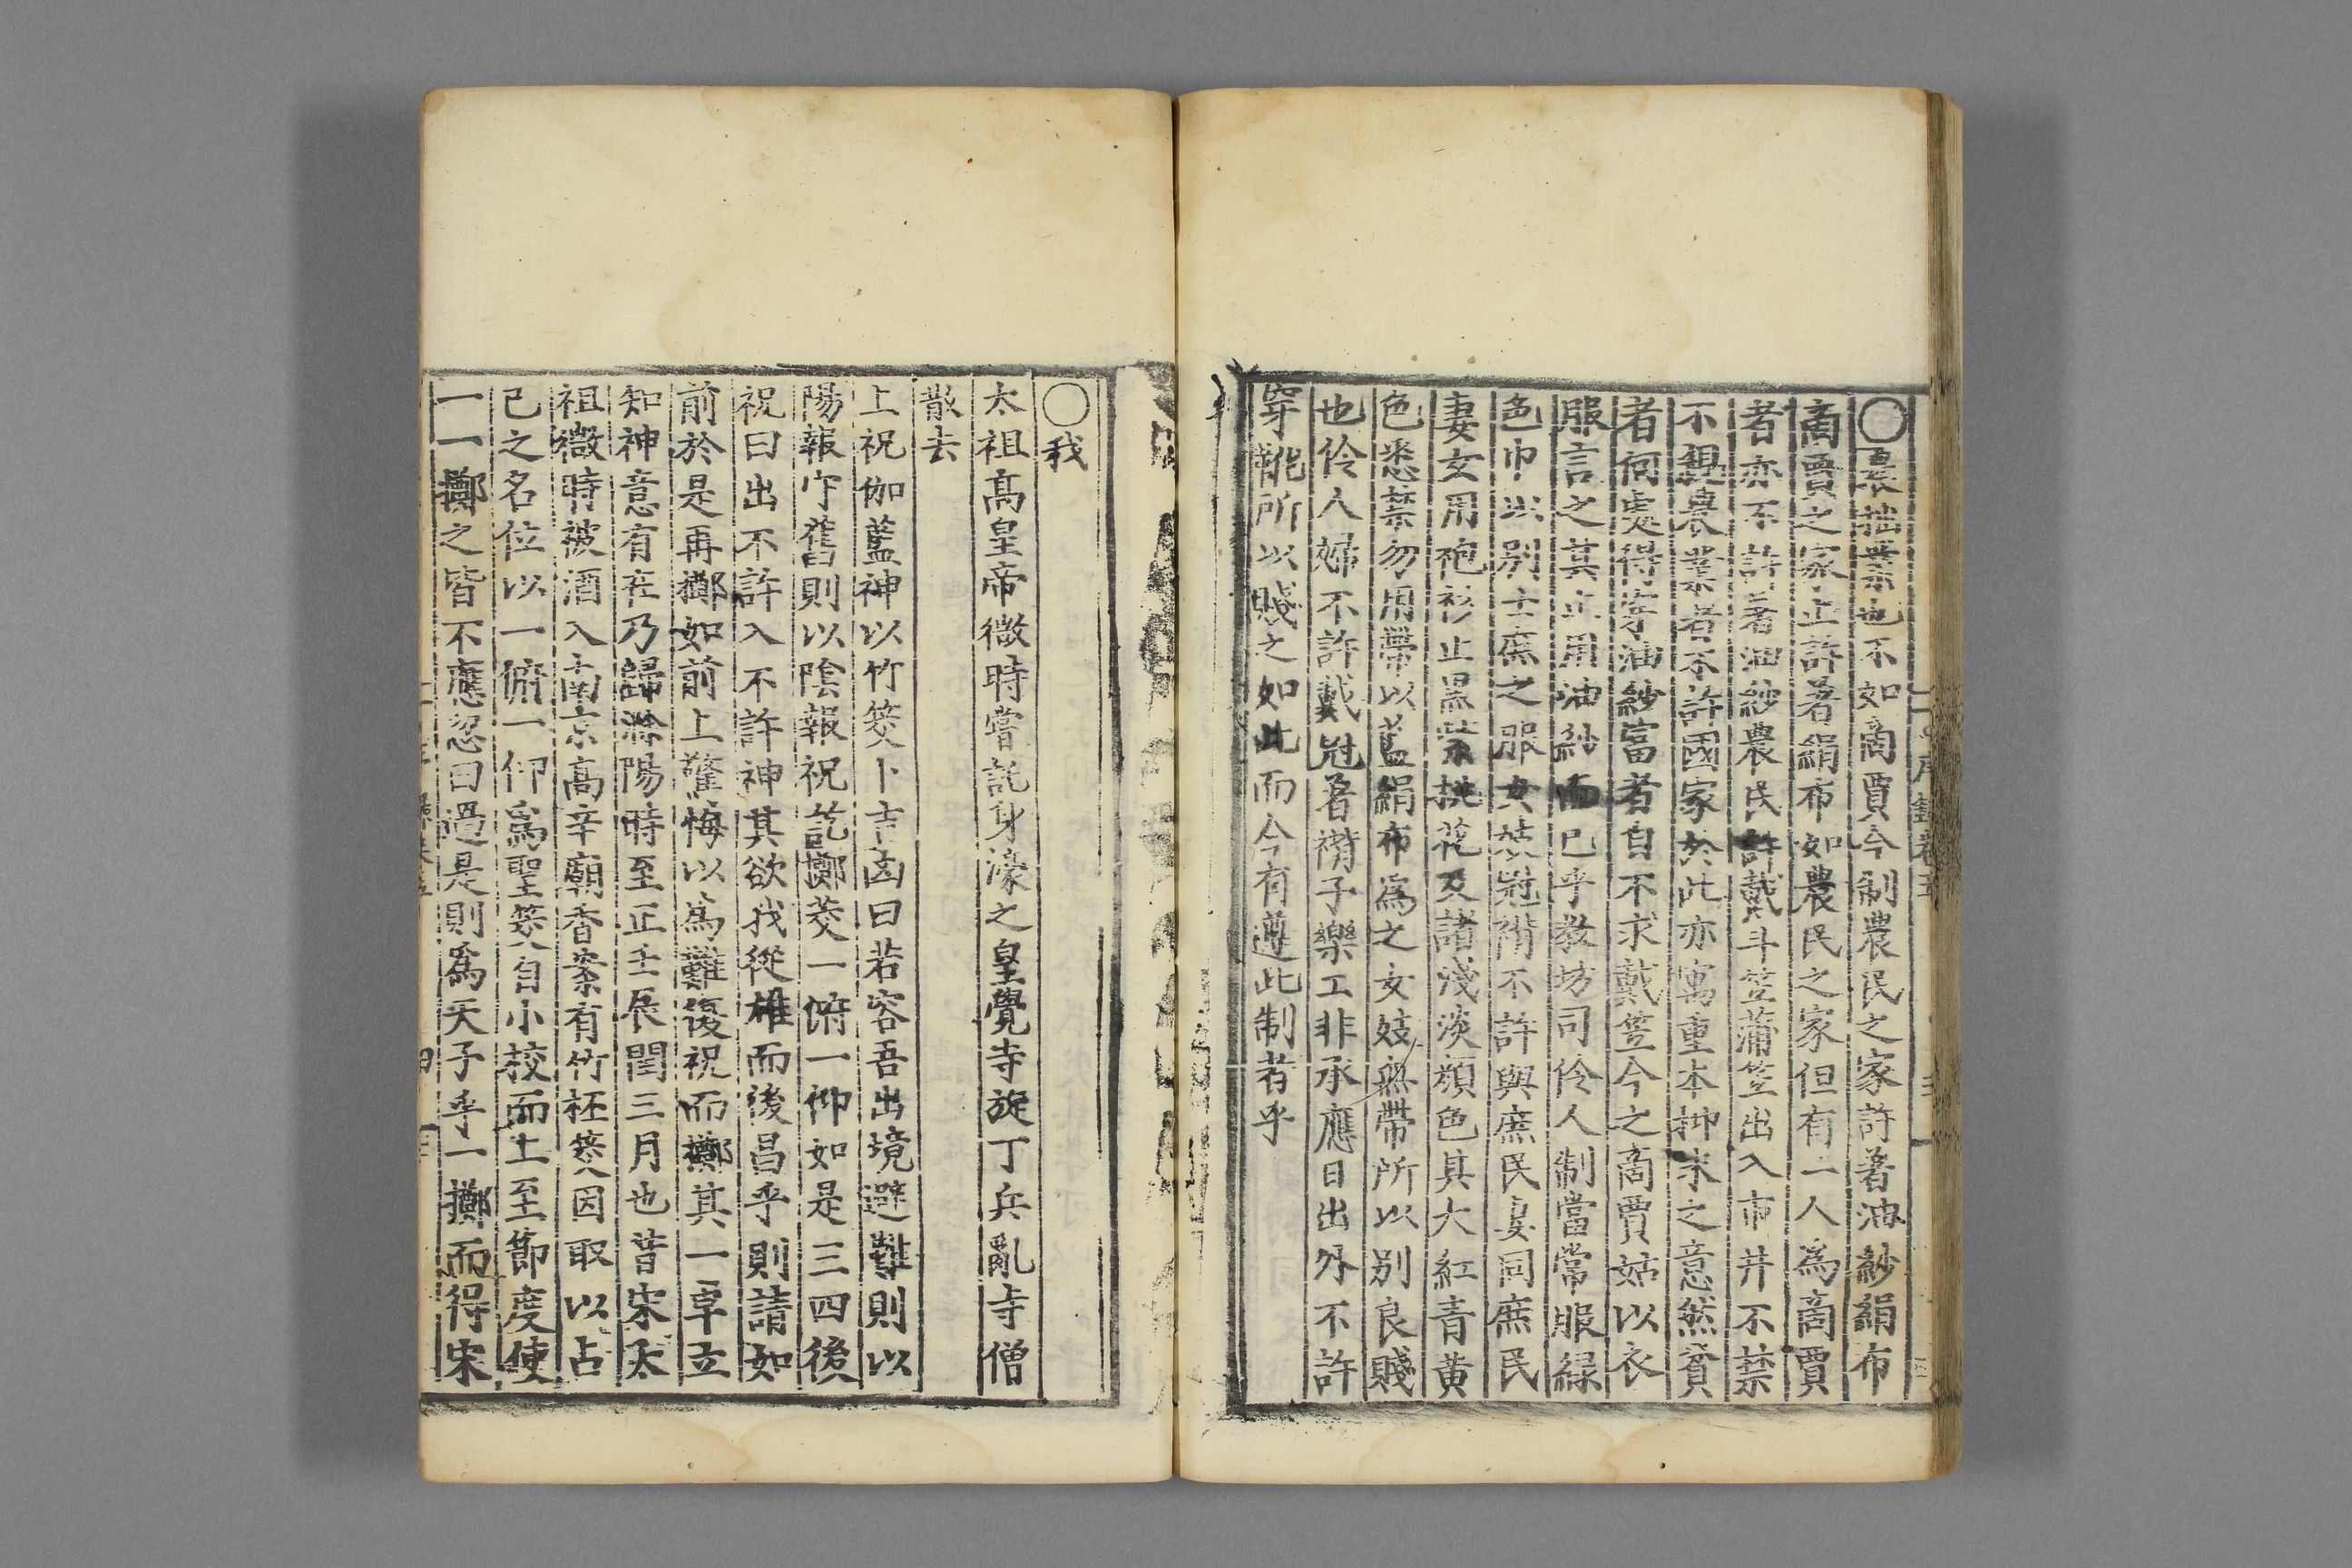 ○農拙業也不如啇賈今制農民之家許著油紗絹布
啇賈之家止許著絹布如農民之家但有一人為啇賈
者亦不許著油紗農民許戴斗笠蒲笠出入市井不禁
不親農業者不許國家於此亦寓重本抑末之意然貧
者何處得穿油紗富者自不求戴笠今之啇賈姑以衣
服言之其止用油紗而已乎敎坊司伶人制當常服綠
色巾以別士庶之服女妓冠褙不許與庶民妻同庶民
妻女用袍衫止黑紫桃花及諸淺淡顔色其大紅青黄
色悉禁勿用帶以藍絹布為之女妓無帶所以別良賤
也伶人婦不許戴冠著褙子樂工非承應日出外不許
穿靴所以賤之如此而今有遵此制者乎
○我
太祖高皇帝微時嘗託身濠之皇覺寺旋丁兵亂寺僧
散去
上祝伽藍神以竹筊卜吉凶曰若容吾出境避難則以
陽報守舊則以陰報祝訖擲茭一俯一仰如是三四後
祝曰出不許入不許神其欲我從雄而後昌乎則請如
前於是再擲如前上驚悔以為難復祝而擲其一卓立
知神意有在乃歸滁陽時至正壬辰閏三月也昔宋太
祖微時被酒入南京高辛廟香案有竹桮筊因取以占
己之名位以一俯一仰為聖筊自小校而上至節度使
一一擲之皆不應忽曰過是則為天子乎一擲而得宋